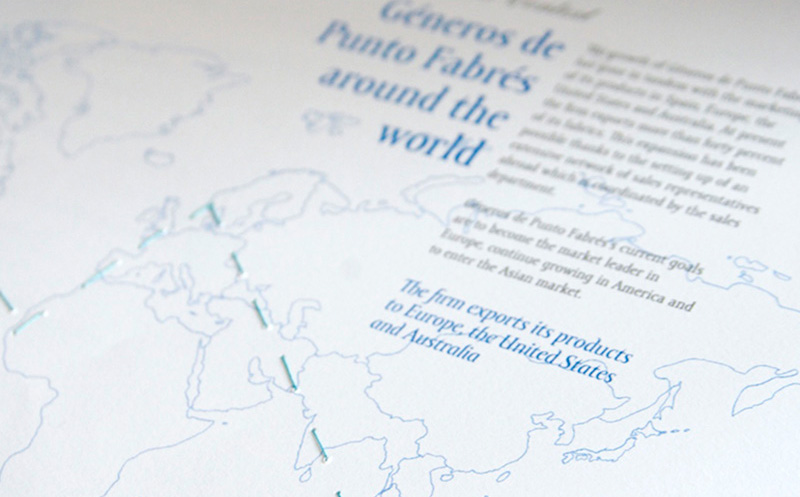 Géneros de
Punto Fabrés
around the
world
The growth of Géneros de Punto Fabrés
has gone in tandem with the marketing
of its products in Spain, Europe, the
United States and Australia. At present
the firm exports more than forty percent
of its fabrics. This expansion has been
possible thanks to the setting up of an
extensive network of sales representatives
abroad which is coordinated by the sales
department.
Géneros de Punto Fabrés's current goals
are to become the market leader in
Europe, continue growing in America and
to enter the Asian market.
The firm exports its products
to Europe, the United States
and Australia